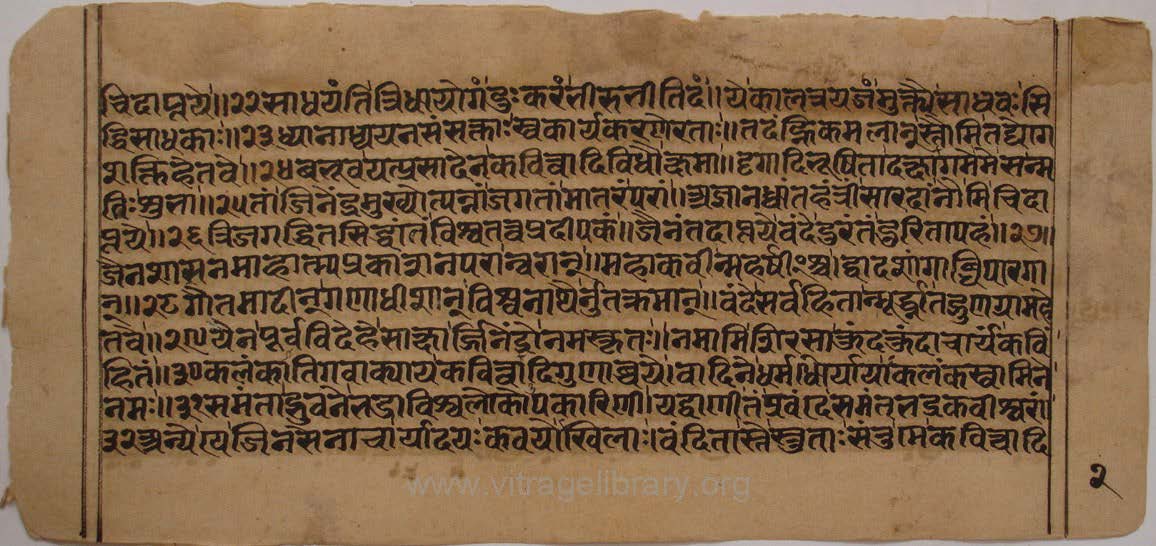 चिदाप्तये॥२२साधयंति त्रिधा योगं दुःकरं नीरुनीतिदं॥ये कालत्रयजं मुक्त्यै साधवः सि
द्धिसाधकाः॥२३ध्यानाध्ययनसंसक्ताः स्वकार्यकरणे रताः॥तदंह्रिकमलान्स्तौमि तद्योग
शक्तिहेतवे॥२४बभूव यत्प्रसादेन कवित्वादिविधौ क्षमा॥दृगादिभूषिता दक्षा गर्मम सन्म
तिः शुभा॥२५तां जिनेंद्रमुखोत्पन्नां जगतां मातरं परां॥अज्ञानध्वांतहंत्रीं सारदां नौमि चिदा
प्तये॥२६त्रिजगद्धितसिद्धांतं विश्वतत्त्वप्रदीपकं॥जैनं तदाप्तये वंदे दुरंतं दुरितापहं॥२७॥
जैनशासनमाहात्म्यप्रकाशनपरान्वरान्॥महाकवीन्महर्षींश्च द्वादशांगाब्धिपारगा
न्॥२८गौतमादीन्गणाधीशान् विश्वनाथैर्नुतक्रमान्॥वंदे सर्वहितान्मूर्द्ध्ना तद्गुणग्रामहे
तवे॥२९येन पूर्वविदेहे साक्षाज्जिनेंद्रो नमस्कृतः॥नमामि शिरसा कुंदकुंदाचार्यं कविं
हितं॥३०कलंकातिगवाक्याय कवित्वादिगुणाप्तये।वादिने धर्मधौर्यायाकलंकस्वामिने
नमः॥३१समंताद्भुवने भद्रा विश्वलोकोपकारिणी।यद्वाणी तं प्रवंदे समंतभद्रकवीश्वरं॥
३२अन्ये ये जिनसेनाचार्यादयः कवयोखिलाः।वंदितास्ते स्तुताः संतु मे कवित्वादि
२
www.vitragelibrary.org